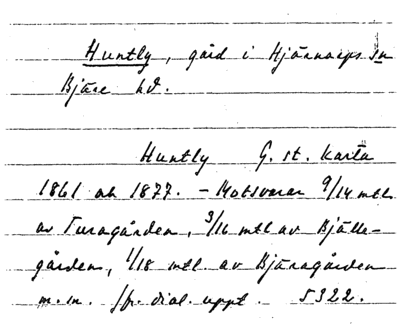 Huntly, gård i Hjärnarps sn
Bjäre hd.
Huntly G. st. karta
1861 ok 1877. – Motsvarar 9/14 mtl
av Turagården, 3/16 mtl av Bjälle-
gården, 1/18 mtl. av Bjäragården
m.m. Jfr. dial. uppt. 5322.